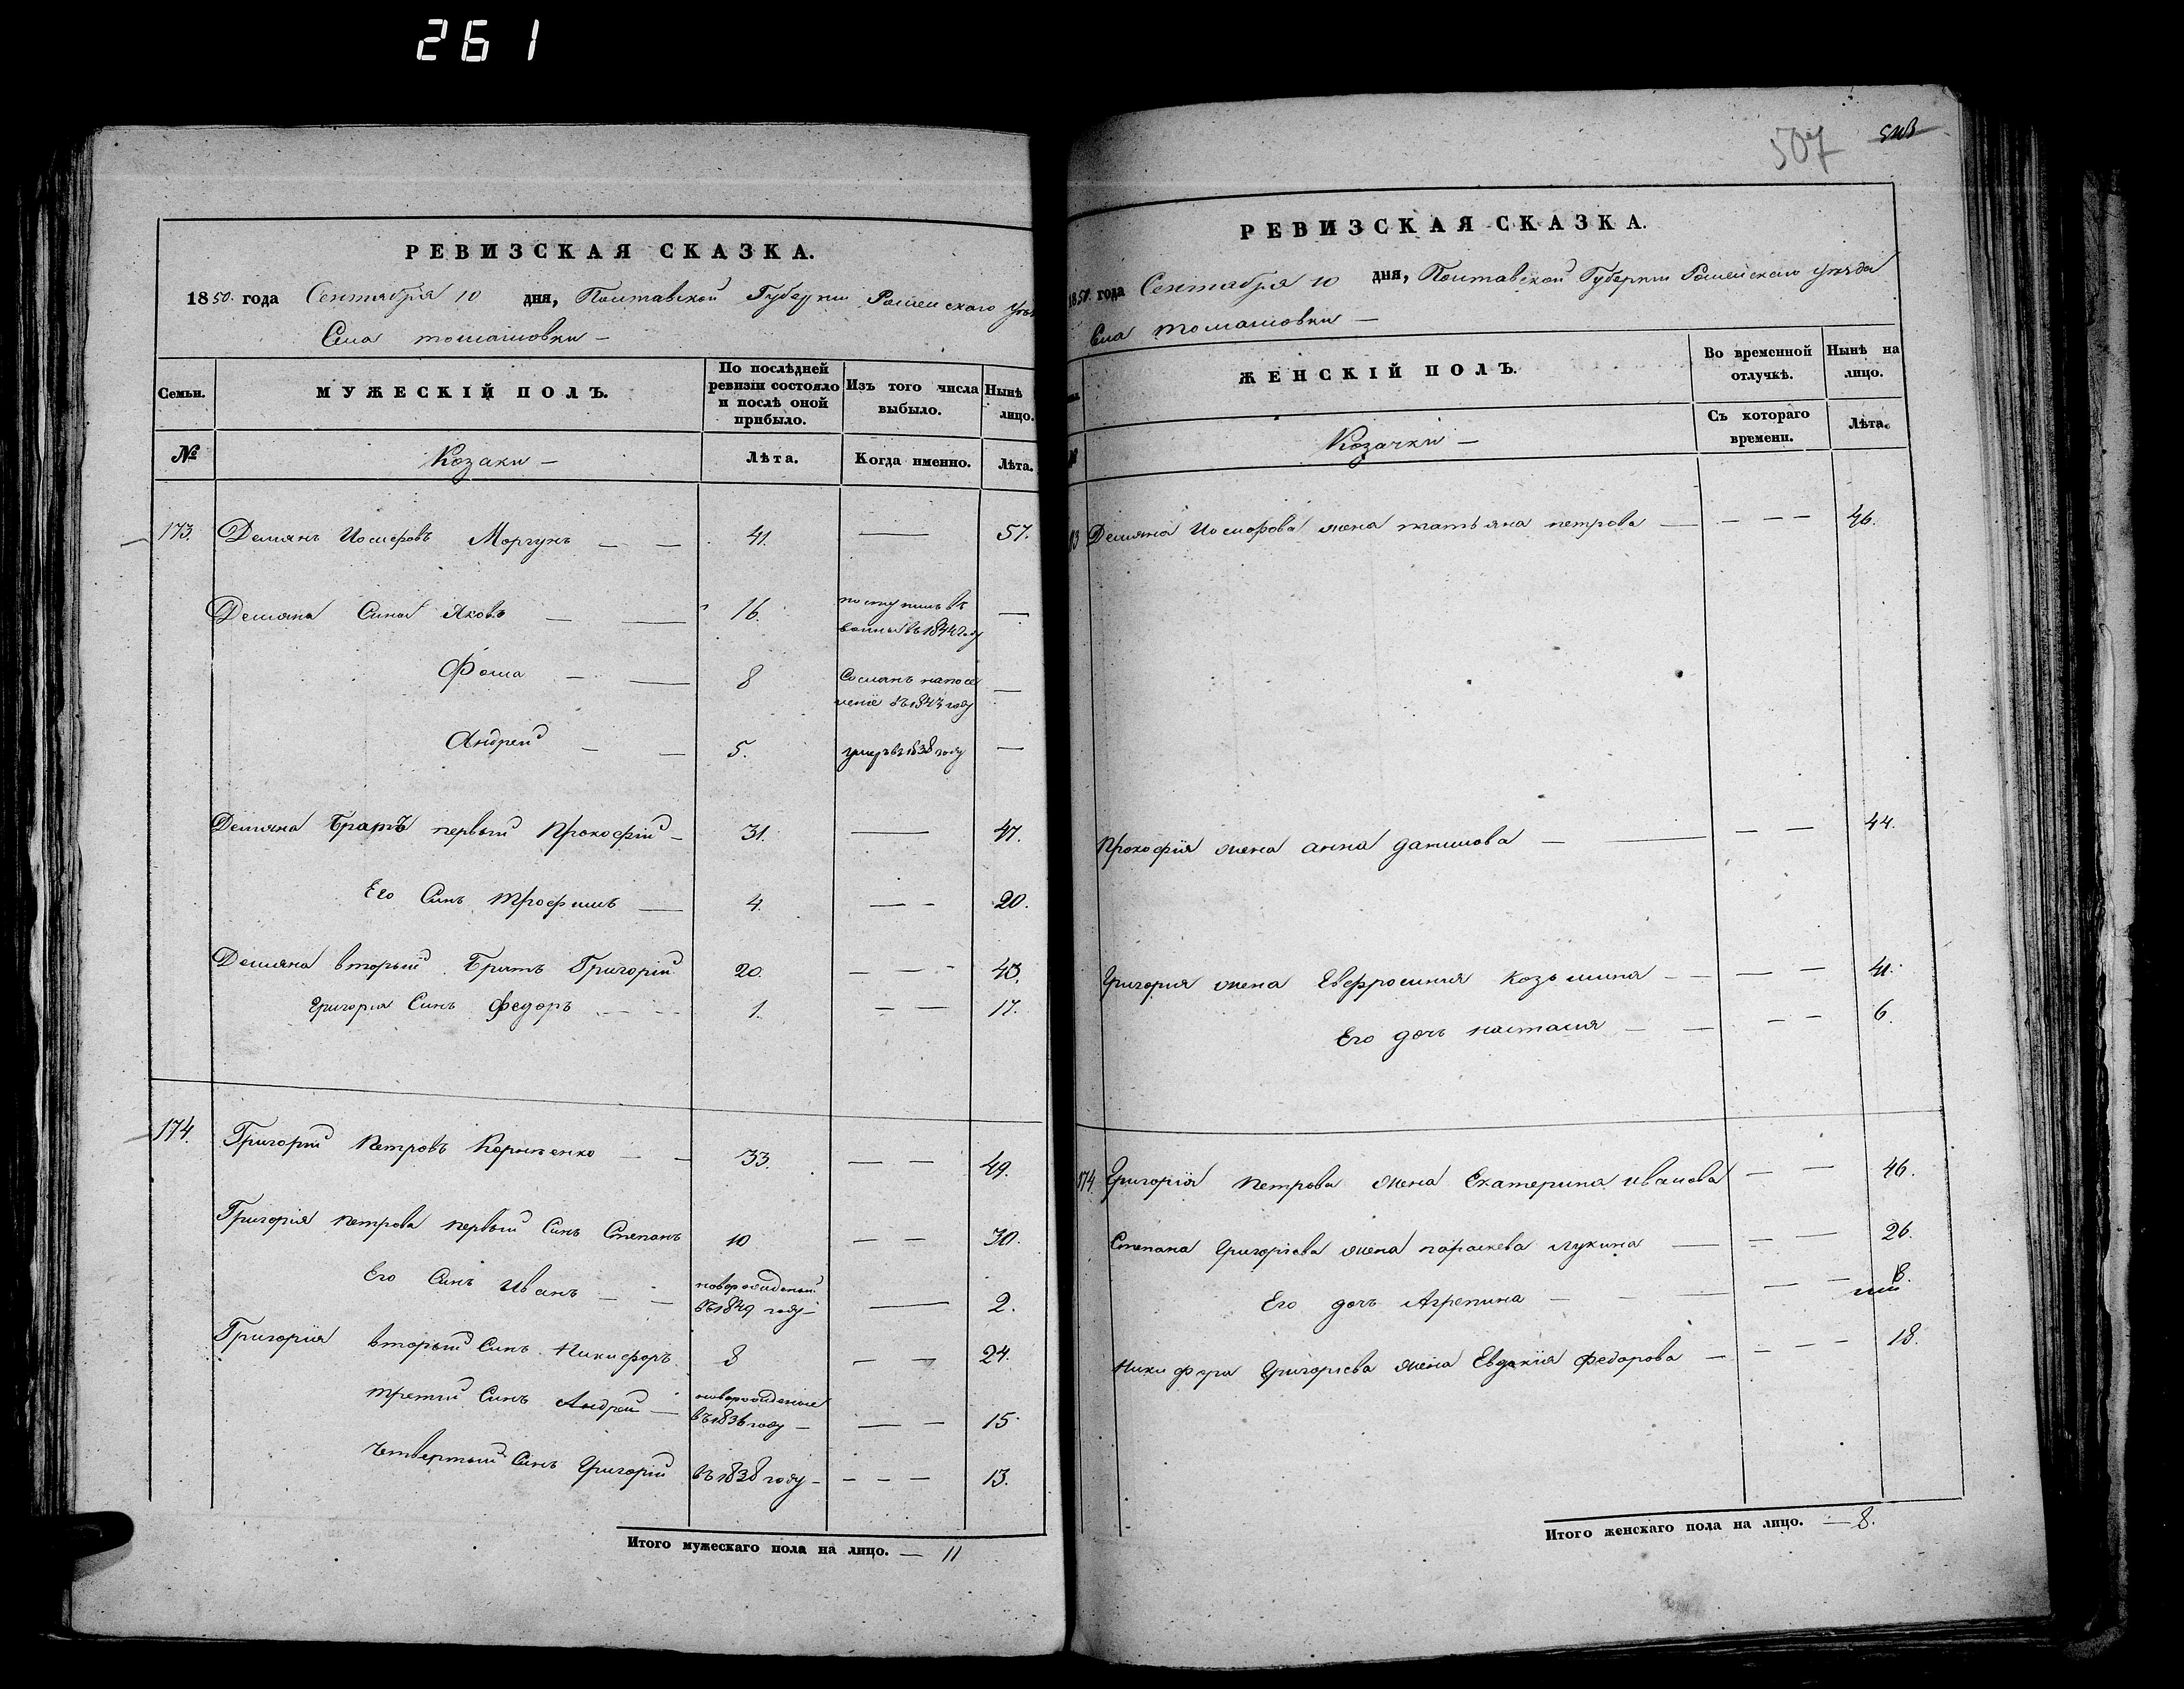 261
РЕВИЗСКАЯ СКАЗКА.
1850. года Сентября 10 дня, Полтавской Губернии Роменского Уез
Села томашовки —
Семьи.
МУЖЕСКІЙ ПОЛЪ.
По послѣдней ревизіи состояло и послѣ оной прибыло.
Изъ того числа выбыло.
Нынѣ лицо.
№
Козаки —
Лѣта.
Когда именно.
Лѣта.
173. Демянъ Иосифовъ Моргунъ — — 41. — 57.
Демяна Синъ Яковъ — — 16. поступилъ въ
военные въ 1844 году —
Фома — — 8 Сосланъ на посе
ление въ 1843 году —
Андрей — — 5. умеръ в 1838 году —
Демяна Братъ первый Прокофій — 31. — 47.
Его Синъ трофимъ — 4. — — 20.
Демяна вторый Братъ Григорій 20. — — - 43.
Григорія Синъ Федоръ — — 1. — — 17.
174. Григорій Петровъ Корниенко — — 33. — — 49.
Григорія петрова первый Синъ Степанъ 10 — — 30.
Его Синъ Иванъ — — новорожденый
въ 1849 году — — 2.
Григорія вторый Синъ Никифоръ 8 — — 24.
третий Синъ Андрей — новорожденые
въ 1836 году — — — 15.
Четвертый Синъ Григорий въ 1838 году — — — — 13.
Итого мужескаго пола на лицо. — 11
507
РЕВИЗСКАЯ СКАЗКА.
1850. года Сентября 10 дня, Полтавской Губернии Роменского уезда
Села томашовки —
ЖЕНСКІЙ ПОЛЪ.
Во временной отлучкѣ.
Нынѣ на лицо.
№
Козачки —
Съ котораго времени.
Лѣта.
173 Демяна Иосифова жена татьяна петрова — — — — 46.
Прокофія жена анна данилова — — — — 44.
Григория жена Евфросиния Козьмина — — — — 41.
Его дочь настасия — — — — 6.
174. Григорія Петрова жена Екатерина иванова — — 46.
Степана Григоріева жена параскева лукина — — — 26.
Его дочь Агрепина — — — — 8.
Никифора Григоріева жена Евдокія Федорова — — — — 18.
Итого женскаго пола на лицо. — 8.